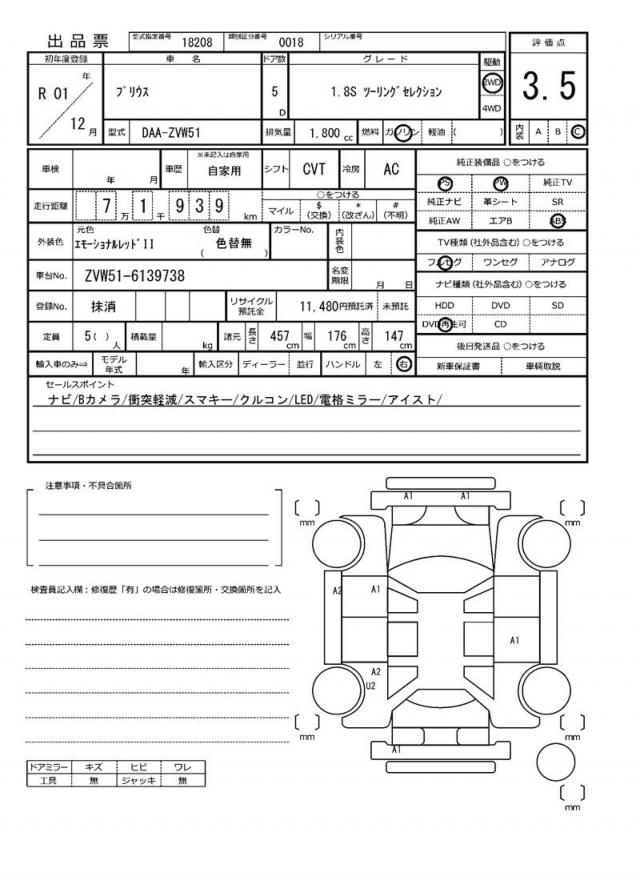 出品票 型式指定番号 18208 類別区分番号 0018 シリアル番号
初年度登録 車名 ドア数 グレード 駆動 評価点
R 01 年 12 月 プリウス 5 D 1.8S ツーリングセレクション 2WD 4WD 3.5
型式 DAA-ZVW51 排気量 1,800 cc 燃料 ガソリン 軽油 ( ) 内装 A B C
車検 年 月 車歴 ※未記入は自家用 自家用 シフト CVT 冷房 AC
純正装備品 ○をつける
PS PW 純正TV
純正ナビ 革シート SR
純正AW エアB ABS
走行距離 7 万 1 千 9 3 9 km ○をつける
マイル $ (交換) * (改ざん) # (不明)
TV種類 (社外品含む) ○をつける
フルセグ ワンセグ アナログ
外装色 元色 エモーショナルレッドII 色替 ( 色替無 ) カラーNo. 内装色
ナビ種類 (社外品含む) ○をつける
HDD DVD SD
DVD再生可 CD
車台No. ZVW51-6139738 名変期限 月 日
登録No. 抹消 リサイクル預託金 11,480円預託済 未預託
定員 5( ) 人 積載量 kg 諸元 長さ 457 cm 幅 176 cm 高さ 147 cm
後日発送品 ○をつける
新車保証書 車輌取説
輸入車のみ⇨ モデル年式 年 輸入区分 ディーラー 並行 ハンドル 左 右
セールスポイント
ナビ/Bカメラ/衝突軽減/スマキー/クルコン/LED/電格ミラー/アイスト/
注意事項・不具合箇所
検査員記入欄：修復歴「有」の場合は修復箇所・交換箇所を記入
A1 A1
mm mm
A2 A1
A1
A2
U2
mm mm
A1
mm
ドアミラー キズ ヒビ ワレ
工具 無 ジャッキ 無